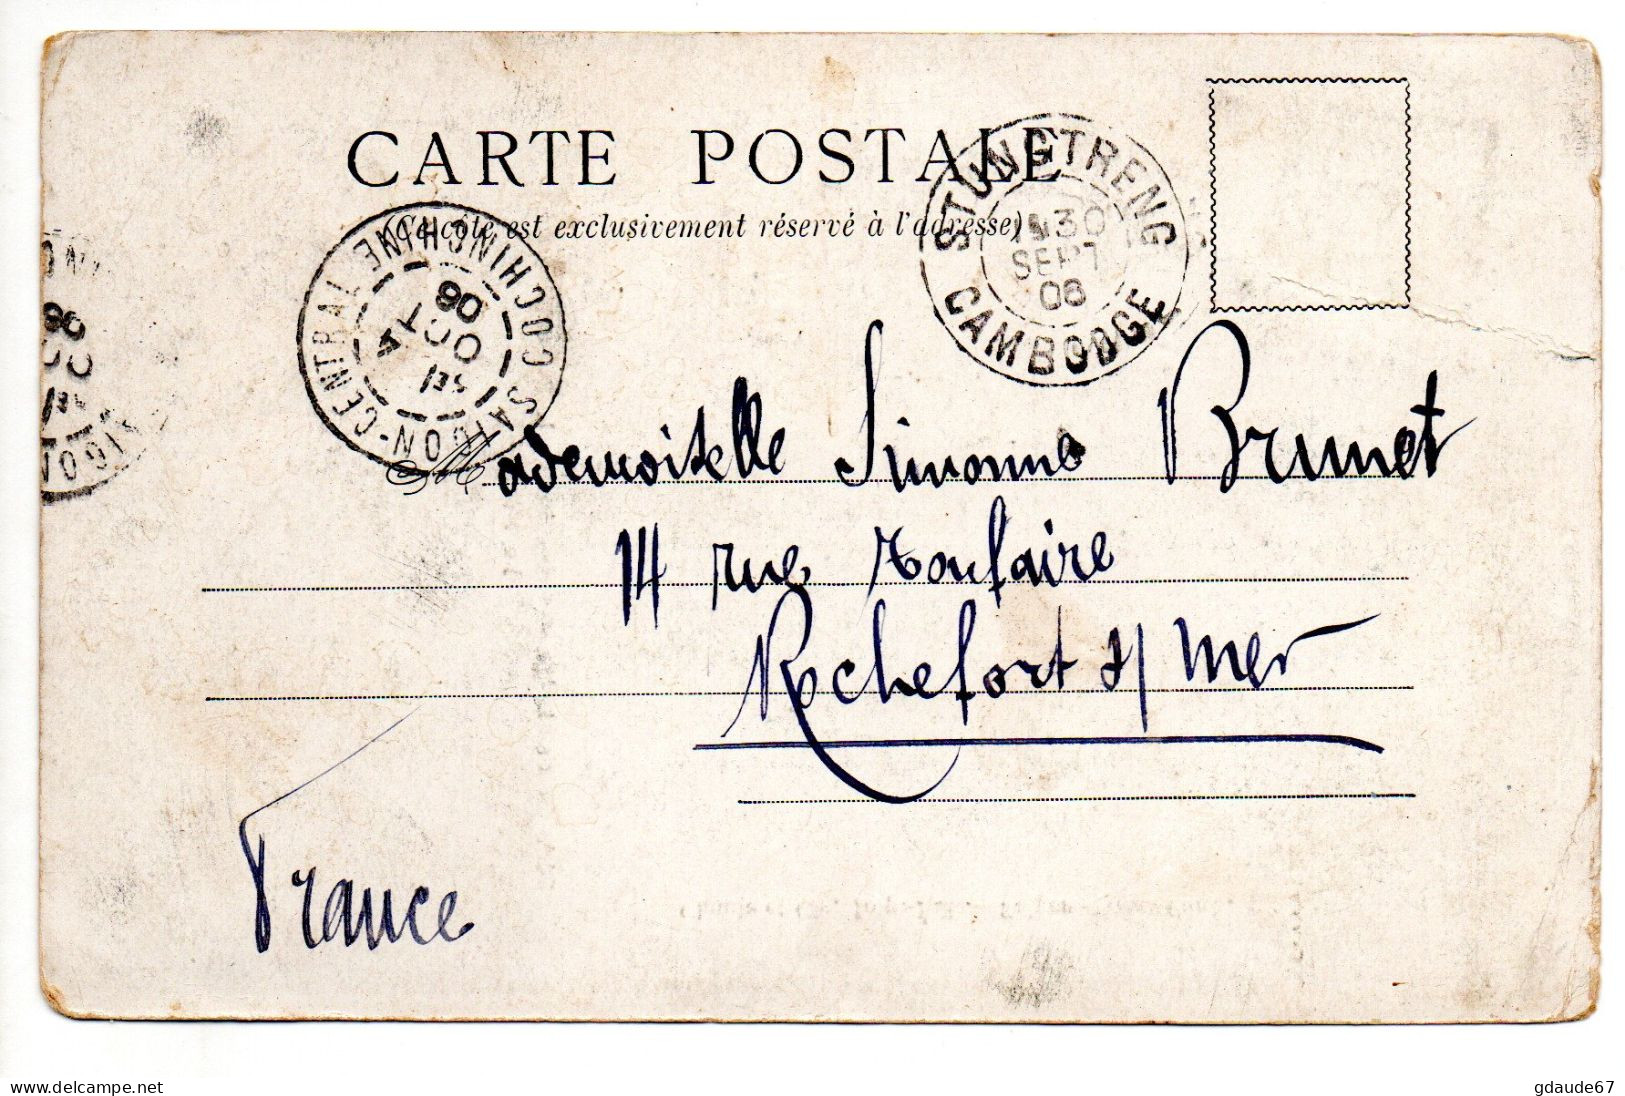 CARTE POSTALE
(Ce côté est exclusivement réservé à l'adresse)
STUNGTRENG
30
SEPT
06
CAMBODGE
SAIGON-CENTRAL COCHINCHINE
OCT
06
Mademoiselle Simonne Brunet
14 rue Toufaire
Rochefort s/ mer
France
www.delcampe.net
gdaude67